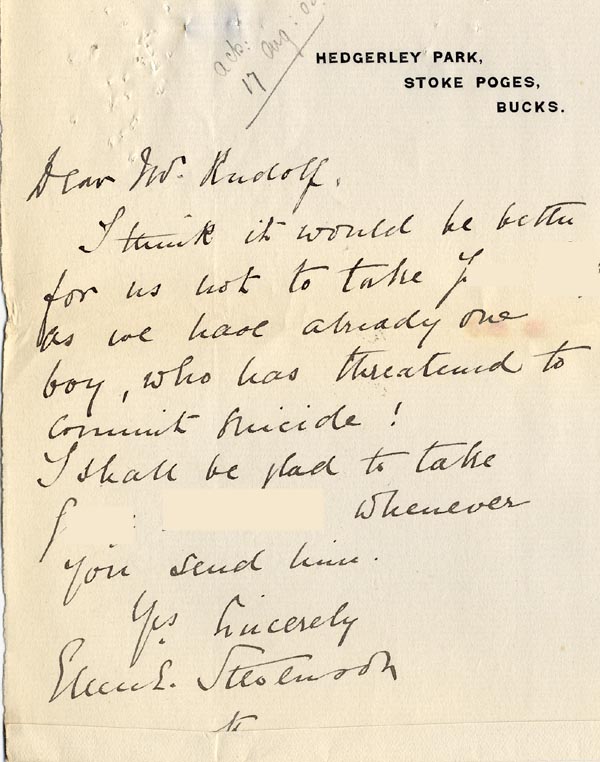 ack:
17 aug:
HEDGERLEY PARK,
STOKE POGES,
BUCKS.
Dear Mr. Rudolf.
I think it would be better
for us not to take J
as we have already one
boy, who has threatened to
commit suicide!
I shall be glad to take
whenever
you send him.
Yrs Sincerely
Ellen E. Stevenson